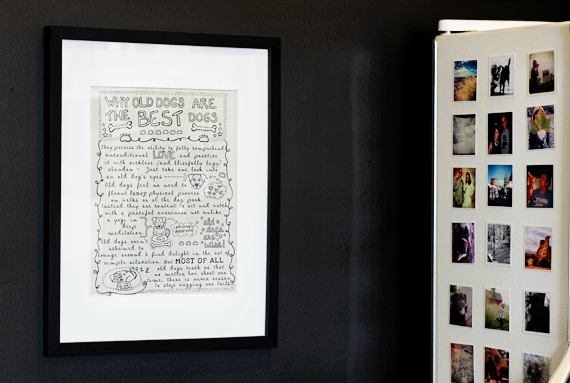 WHY OLD DOGS ARE
THE BEST DOGS
They possess the ability to fully comprehend
unconditional LOVE and practice
it with reckless (and blissfully lazy)
abandon - Just take one look into
an old dog's eyes
Old dogs feel no need to
flaunt fancy physical prowess
on walks or at the dog park.
Instead they are content to sit and watch
with a peaceful awareness not unlike
a yogi in
deep
meditation.
old
dogs
are
wise!
Old dogs aren't
ashamed to
lounge around & find delight in the art of
simple relaxation. But MOST OF ALL
old dogs teach us that
no matter how short our
time, there is never reason
to stop wagging our tails.